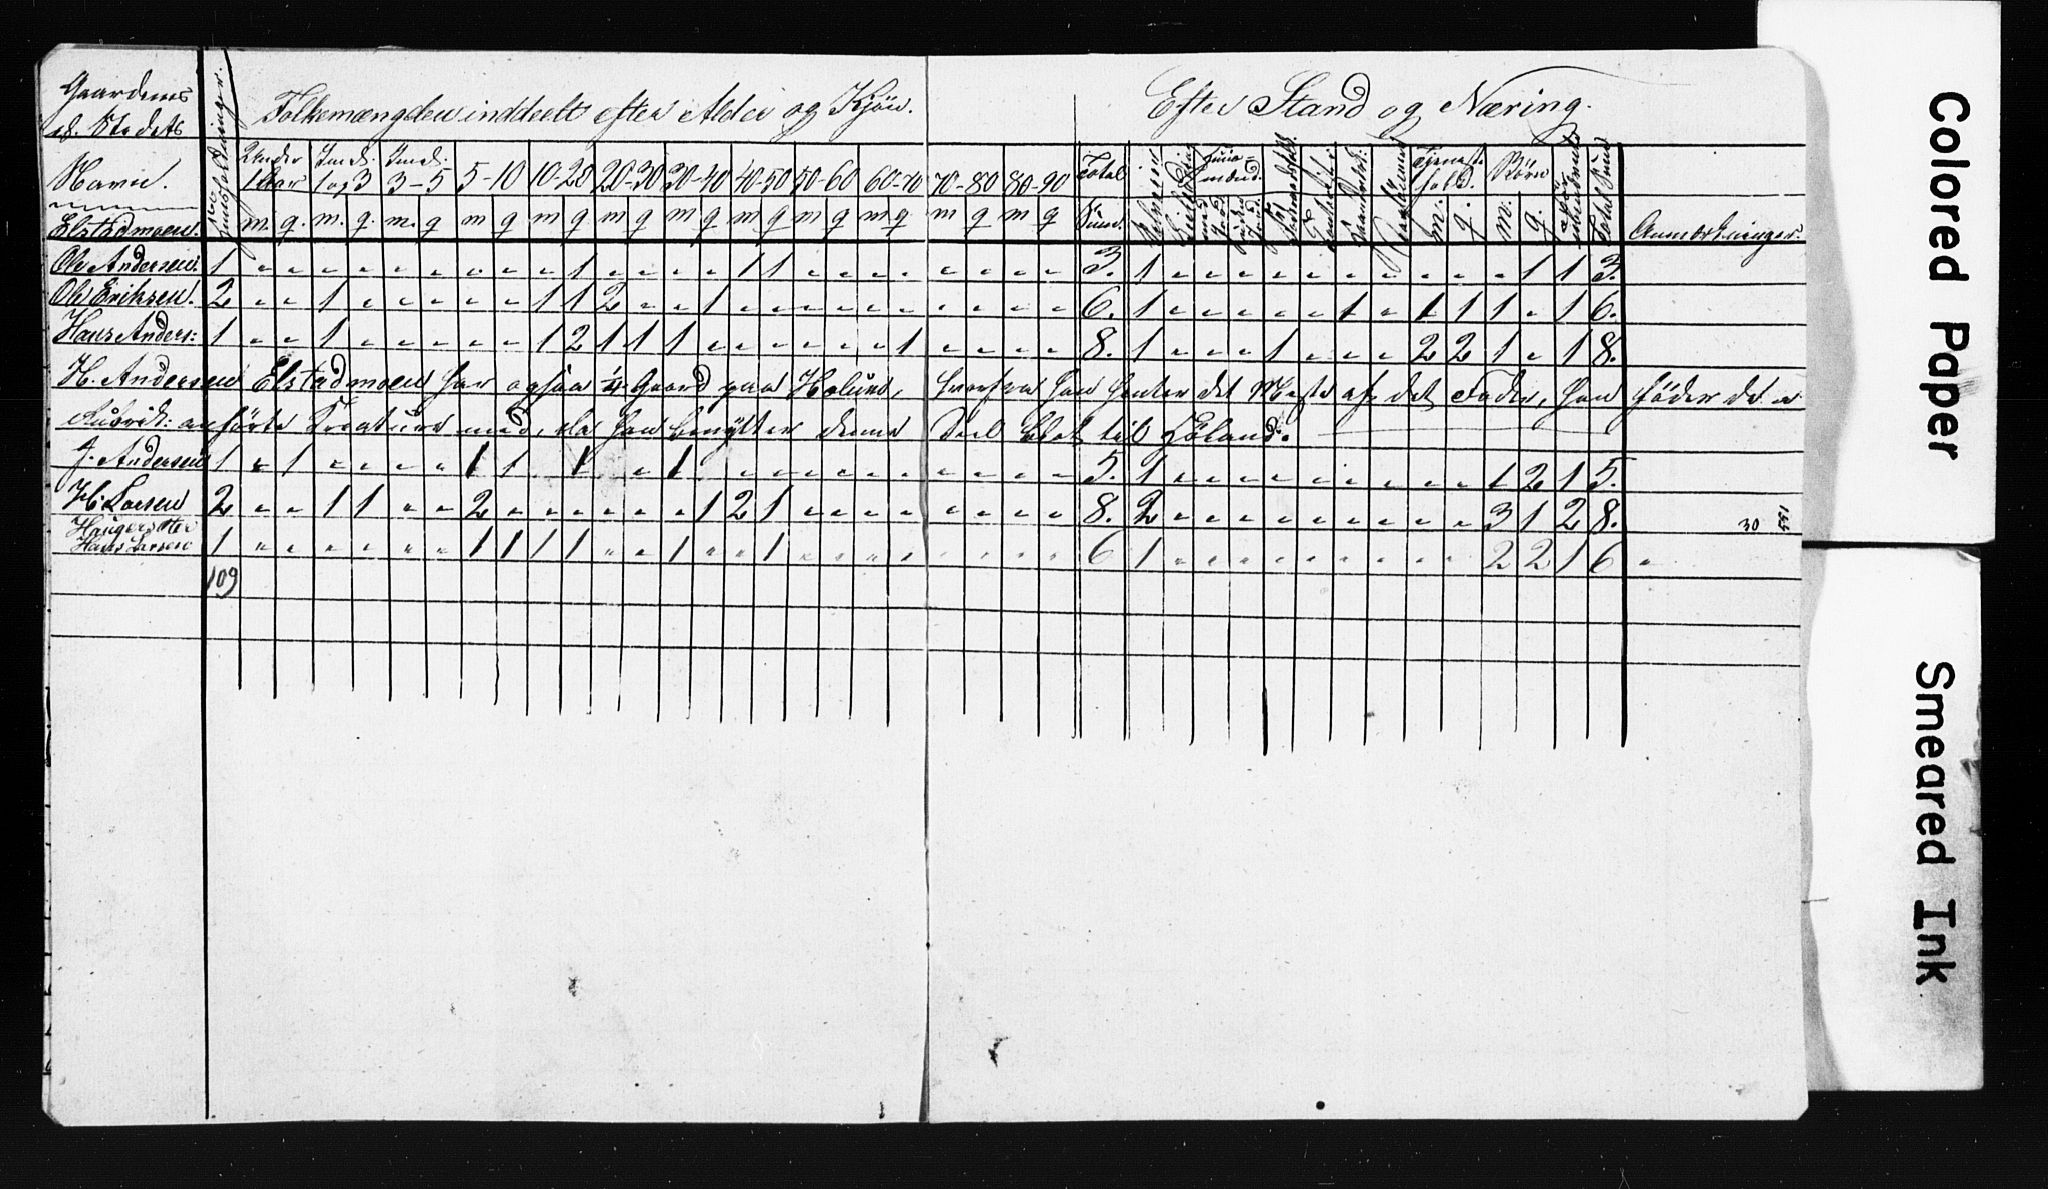 Gaardenes
el. Stedets
Navn.
Elstadmoen.
Huusholdninger.
Folkemængden inddeelt efter Alder og Kjön.
Efter Stand og Næring.
Under 1 Aar
Imell. 1 og 3
Imell. 3-5
5-10 10-20 20-30 30-40 40-50 50-60 60-70 70-80 80-90 Total
Tjeneste
fold.
Börn
Total Sum
m. q. m. q. m. q m q m q m q m q m q m q m q m q m q Sum. m. q. m. q. Anmærkninger.
Ole Andersen. 1 " " " " " " " " " 1 " " " " 1 1 " " " " " " " " 3. 1 " " " " " " " " " " 1 1 3.
Ole Eriksen. 2 " " 1 " " " " " 1 1 2 " " 1 " " " " " " " " " " 6. 1 " " " " " 1 " 1 1 1 " 1 6.
Hans Anders: 1 " " 1 " " " " " 1 2 1 1 1 " " " " " " 1 " " " " 8. 1 " " " 1 " " " 2 2 1 " 1 8.
H. Andersen Elstadmoen har ogsaa 1/4 Gaard paa Holund, hvorfra han henter det Meste af det Foder, han föder de i
Rubrik: anförte Creature med, da han benytter denne Deel blot til Höland.
J. Andersen 1 " 1 " " " " 1 1 " 1 " " 1 " " " " " " " " " " 5. 1 " " " " " " " " " 1 2 1 5.
H. Larsen 2 " " 1 1 " " 2 " " " " " " 1 2 1 " " " " " " " " 8. 2 " " " " " " " " " 3 1 2 8.
30
155
Haugerseter
Hans Larsen 1 " " " " " " 1 1 1 1 " " 1 " " 1 " " " " " " " " 6 1 " " " " " " " " " 2 2 1 6 "
109
Colored Paper
Smeared Ink